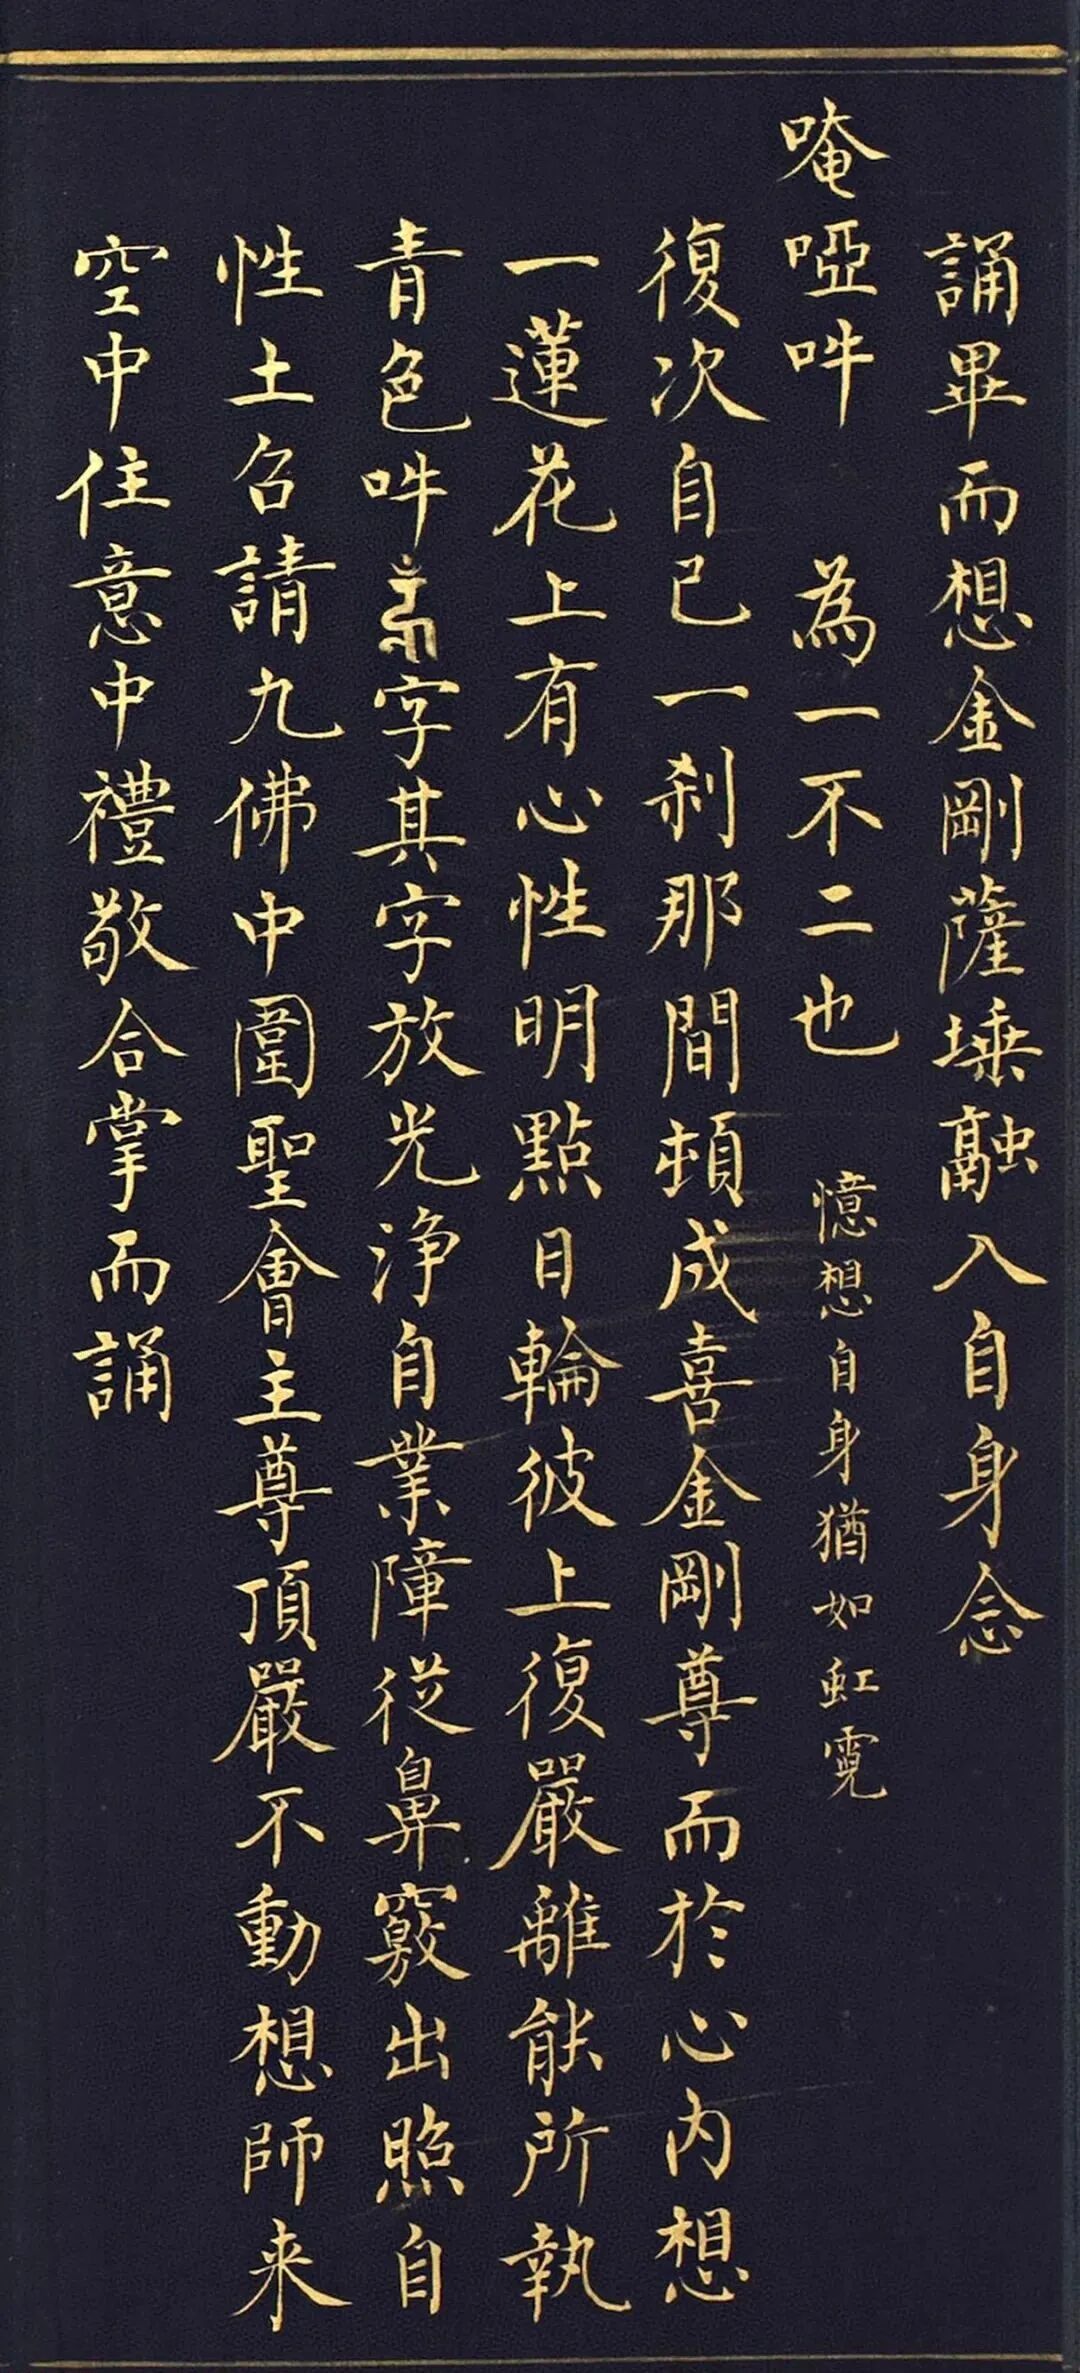 誦畢而想金剛薩埵融入自身念
唵啞吽　為一不二也　憶想自身猶如虹霓
復次自己一刹那間頓成喜金剛尊而於心內想
一蓮花上有心性明點日輪彼上復嚴離能所執
青色吽字其字放光淨自業障從鼻竅出照自
性土召請九佛中圍聖會主尊頂嚴不動想師来
空中住意中禮敬合掌而誦